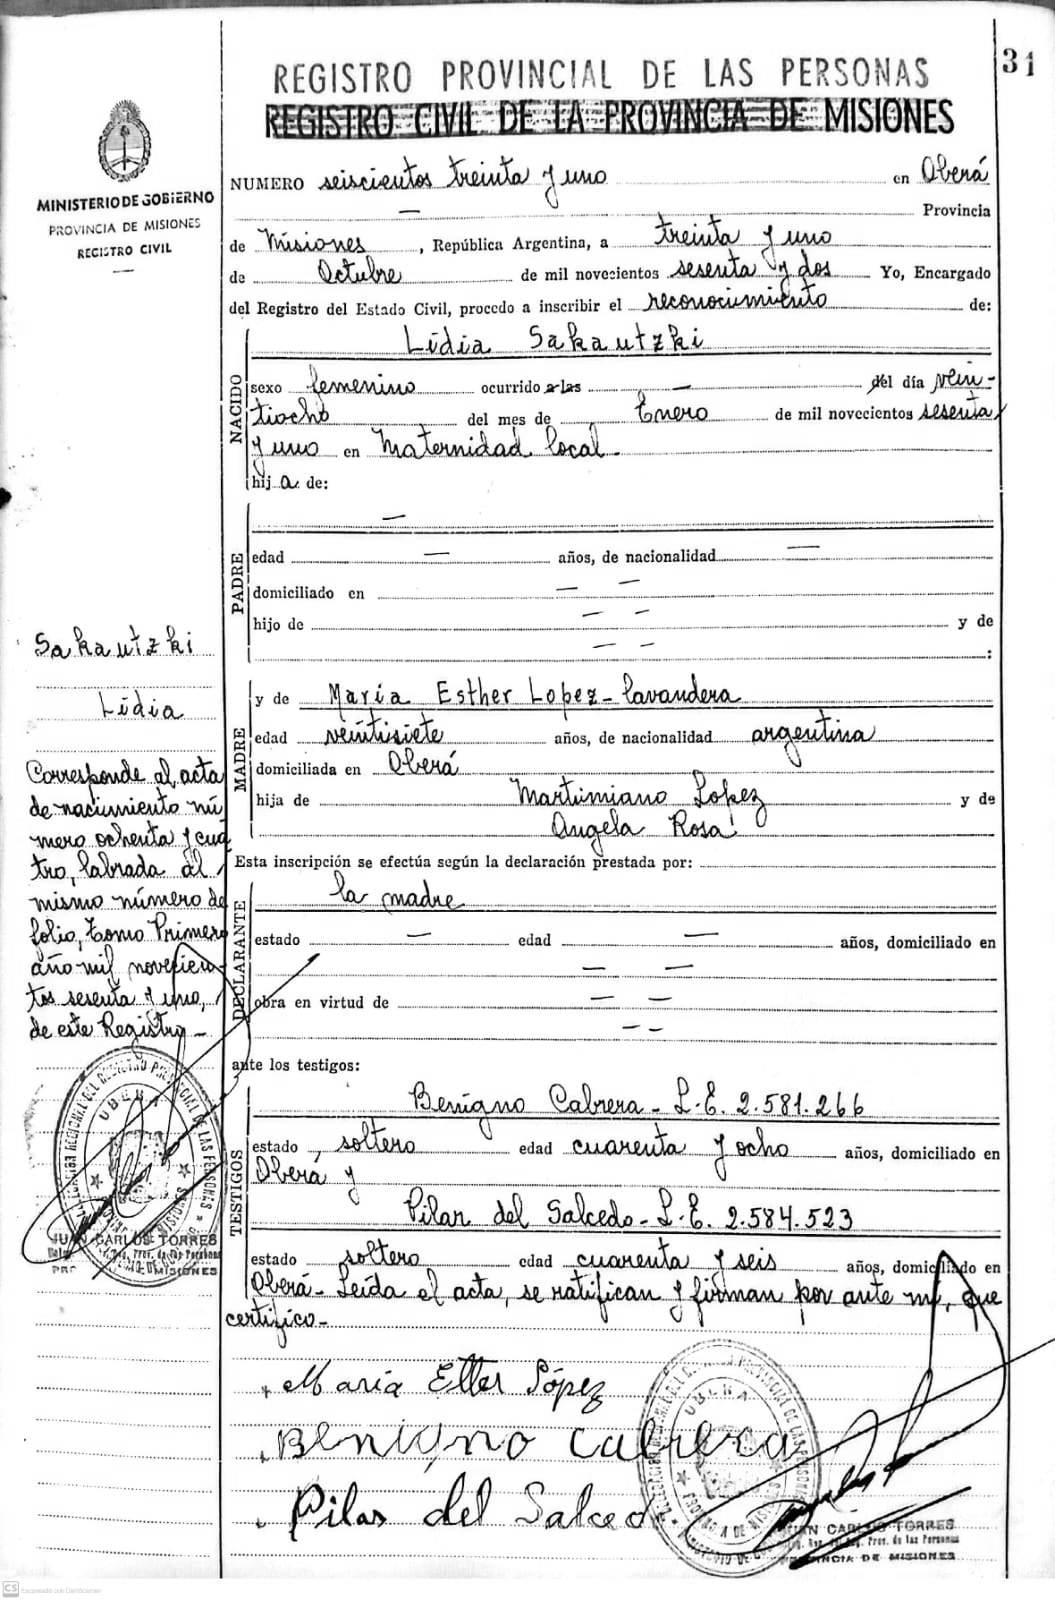 31
REGISTRO PROVINCIAL DE LAS PERSONAS
REGISTRO CIVIL DE LA PROVINCIA DE MISIONES
MINISTERIO DE GOBIERNO
PROVINCIA DE MISIONES
REGISTRO CIVIL
NUMERO seiscientos treinta y uno en Oberá
— Provincia
de Misiones, República Argentina, a treinta y uno
de Octubre de mil novecientos sesenta y dos Yo, Encargado
del Registro del Estado Civil, procedo a inscribir el reconocimiento de:
NACIDO
Lidia Sakautzki
sexo femenino ocurrido a las — del día vein-
tiocho del mes de Enero de mil novecientos sesenta
y uno en Maternidad local.
hija de:
PADRE
—
edad — años, de nacionalidad —
domiciliado en — —
hijo de — — y de
— — :
Sakautzki
Lidia
Corresponde al acta
de nacimiento nú
mero ochenta y cua
tro, labrada al
mismo número de
folio, Tomo Primero
año mil novecien
tos sesenta y uno,
de este Registro—
MADRE
y de María Esther Lopez - lavandera
edad veintisiete años, de nacionalidad argentina
domiciliada en Oberá
hija de Martimiano Lopez y de
Angela Rosa
Esta inscripción se efectúa según la declaración prestada por:
DECLARANTE
la madre
estado — edad — años, domiciliado en
— —
obra en virtud de — —
— —
ante los testigos:
TESTIGOS
Benigno Cabrera - L.E. 2.581.266
estado soltero edad cuarenta y ocho años, domiciliado en
Oberá y
Pilar del Salcedo - L.E. 2.584.523
estado soltero edad cuarenta y seis años, domiciliado en
Oberá - Leída el acta, se ratifican y firman por ante mí, que
certifico-
María Etter López
Benigno Cabrera
Pilar del Salcedo
OBERA
JUAN CARLOS TORRES
Prov. de las Personas
MISIONES
OBERA
JUAN CARLOS TORRES
Prov. de las Personas
PROVINCIA DE MISIONES
CS Escaneado con CamScanner